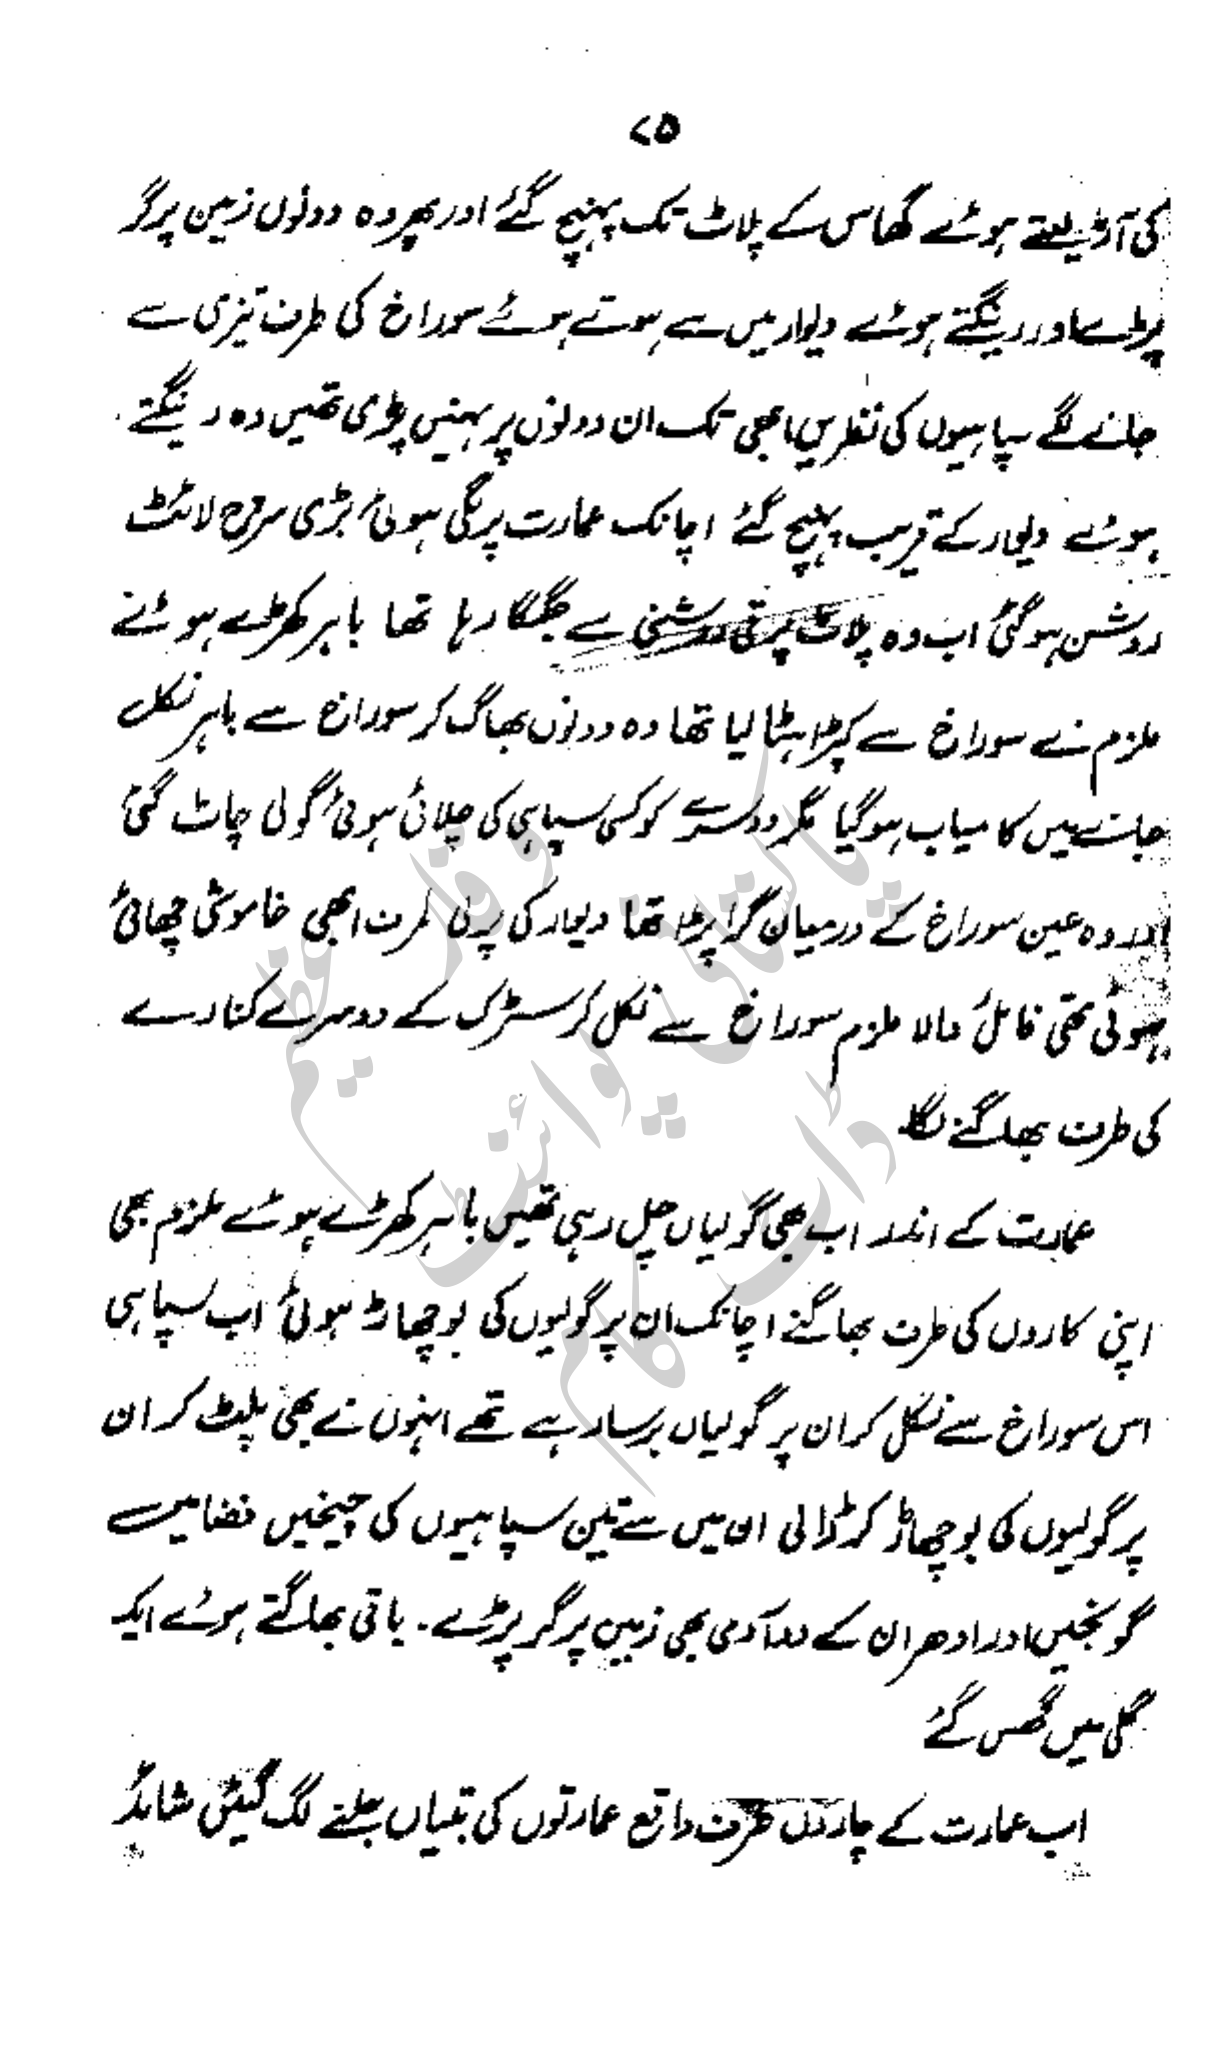 ۷۵
کی آڑ لیتے ہوئے گھاس کے پلاٹ تک پہنچ گئے اور پھر وہ دونوں زمین پر گر
پڑے اور رینگتے ہوئے دیوار میں سے ہوتے ہوئے سوراخ کی طرف تیزی سے
جانے لگے سپاہیوں کی نظریں ابھی تک ان دونوں پر نہیں پڑی تھیں وہ رینگتے
ہوئے دیوار کے قریب پہنچ گئے اچانک عمارت پر لگی ہوئی بڑی سرچ لائٹ
روشن ہو گئی اب وہ پلاٹ برقی روشنی سے جگمگا رہا تھا باہر کھڑے ہوئے
ملزم نے سوراخ سے کپڑا ہٹا لیا تھا وہ دونوں بھاگ کر سوراخ سے باہر نکل
جانے میں کامیاب ہو گیا مگر دوسرے کو کسی سپاہی کی چلائی ہوئی گولی چاٹ گئی
اور وہ عین سوراخ کے درمیان گرا پڑا تھا دیوار کی پرلی طرف ابھی خاموشی چھائی
ہوئی تھی فائل والا ملزم سوراخ سے نکل کر سڑک کے دوسرے کنارے
کی طرف بھاگنے لگا۔
عمارت کے اندر اب بھی گولیاں چل رہی تھیں باہر کھڑے ہوئے ملزم بھی
اپنی کاروں کی طرف بھاگنے اچانک ان پر گولیوں کی بوچھاڑ ہوئی اب سپاہی
اس سوراخ سے نکل کر ان پر گولیاں برسا رہے تھے انہوں نے بھی پلٹ کر ان
پر گولیوں کی بوچھاڑ کر ڈالی ان میں سے تین سپاہیوں کی چیخیں فضا میں
گونجیں اور ادھر ان کے دو آدمی بھی زمین پر گر پڑے۔ باقی بھاگتے ہوئے ایک
گلی میں گھس گئے
اب عمارت کے چاروں طرف واقع عمارتوں کی بتیاں جلنے لگ گیئں شائد
پاکستانی پوائنٹ ڈاٹ کام